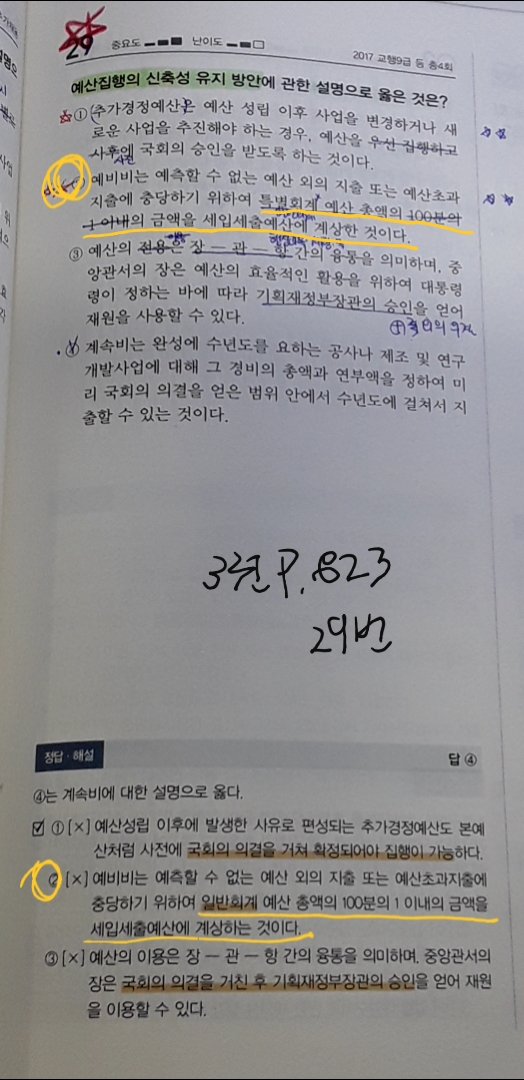 29 중요도 난이도 2017 교행9급 등 총4회
예산집행의 신축성 유지 방안에 관한 설명으로 옳은 것은?
① 추가경정예산은 예산 성립 이후 사업을 변경하거나 새
로운 사업을 추진해야 하는 경우, 예산을 우선 집행하고
사후에 국회의 승인을 받도록 하는 것이다.
사전
② 예비비는 예측할 수 없는 예산 외의 지출 또는 예산초과
지출에 충당하기 위하여 특별회계 예산 총액의 100분의
1 이내의 금액을 세입세출예산에 계상한 것이다.
③ 예산의 전용은 장 - 관 - 항 간의 융통을 의미하며, 중
앙관서의 장은 예산의 효율적인 활용을 위하여 대통령
령이 정하는 바에 따라 기획재정부장관의 승인을 얻어
재원을 사용할 수 있다.
④ 계속비는 완성에 수년도를 요하는 공사나 제조 및 연구
개발사업에 대해 그 경비의 총액과 연부액을 정하여 미
리 국회의 의결을 얻은 범위 안에서 수년도에 걸쳐서 지
출할 수 있는 것이다.
3권 P.823
29번
정답·해설 답 ④
④는 계속비에 대한 설명으로 옳다.
① [×] 예산성립 이후에 발생한 사유로 편성되는 추가경정예산도 본예
산처럼 사전에 국회의 의결을 거쳐 확정되어야 집행이 가능하다.
② [×] 예비비는 예측할 수 없는 예산 외의 지출 또는 예산초과지출에
충당하기 위하여 일반회계 예산 총액의 100분의 1 이내의 금액을
세입세출예산에 계상하는 것이다.
③ [×] 예산의 이용은 장 - 관 - 항 간의 융통을 의미하며, 중앙관서의
장은 국회의 의결을 거친 후 기획재정부장관의 승인을 얻어 재원
을 이용할 수 있다.